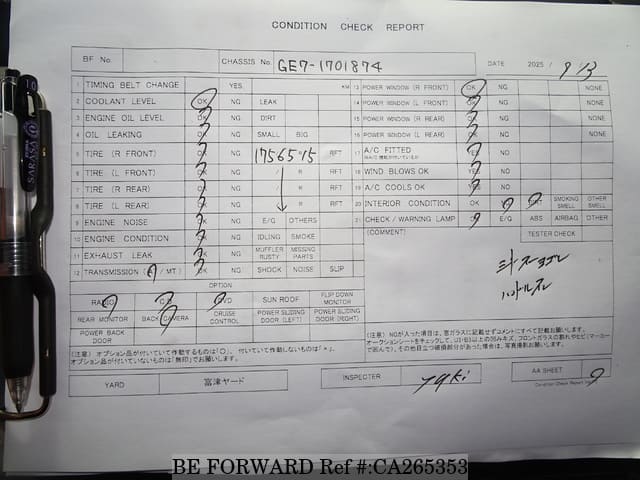 CONDITION CHECK REPORT
BF No. CHASSIS No. GE7-1701874 DATE 2025 / 9 / 13
1 TIMING BELT CHANGE YES KM
2 COOLANT LEVEL OK NG LEAK
3 ENGINE OIL LEVEL OK NG DIRT
4 OIL LEAKING OK NG SMALL BIG
5 TIRE (R FRONT) OK NG 175 65 15 RFT
6 TIRE (L FRONT) OK NG / R RFT
7 TIRE (R REAR) OK NG / R RFT
8 TIRE (L REAR) OK NG / R RFT
9 ENGINE NOISE OK NG E/G OTHERS
10 ENGINE CONDITION OK NG IDLING SMOKE
11 EXHAUST LEAK OK NG MUFFLER RUSTY MISSING PARTS
12 TRANSMISSION (A / MT) OK NG SHOCK NOISE SLIP
13 POWER WINDOW (R FRONT) OK NG NONE
14 POWER WINDOW (L FRONT) OK NG NONE
15 POWER WINDOW (R REAR) OK NG NONE
16 POWER WINDOW (L REAR) OK NG NONE
17 A/C FITTED YES NG
18 WIND BLOWS OK YES NG
19 A/C COOLS OK YES NG
20 INTERIOR CONDITION OK DIRT SMOKING SMELL OTHER SMELL
21 CHECK / WARNING LAMP OK E/G ABS AIRBAG OTHER
(COMMENT) TESTER CHECK
OPTION
RADIO C.D DVD SUN ROOF FLIP DOWN MONITOR
REAR MONITOR BACK CAMERA CRUISE CONTROL POWER SLIDING DOOR (LEFT) POWER SLIDING DOOR (RIGHT)
POWER BACK DOOR
(注意) オプション品が付いていて作動するものは「〇」、付いていて作動しないものは「×」、
オプション品が付いていないものは「無印」でお願いします。
(注意) NGが入った項目は、窓ガラスに記載せずコメントにすべて記載お願いします。
YARD 富津ヤード INSPECTER AA SHEET
Condition Check Report
SARASA
BE FORWARD Ref #:CA265353